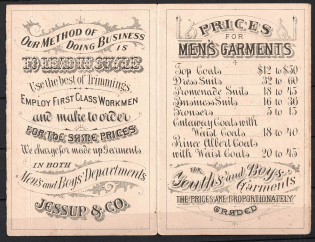 OUR METHOD OF
DOING BUSINESS
IS
TO LEAD IN STYLE
Use the best of Trimmings
EMPLOY FIRST CLASS WORKMEN
and make to order
FOR THE SAME PRICES
We charge for made up Garments
IN BOTH
Men's and Boys' Departments
JESSUP & CO.
PRICES
FOR
MEN'S GARMENTS
Top Coats $12 to $30
Dress Suits 32 to 60
Promenade Suits 18 to 45
Business Suits 16 to 36
Trousers 5 to 15
Cutaway Coats with
Waist Coats 18 to 40
Prince Albert Coats
with Waist Coats 20 to 45
Youths and Boys
Garments
THE PRICES ARE PROPORTIONATELY
GRADED